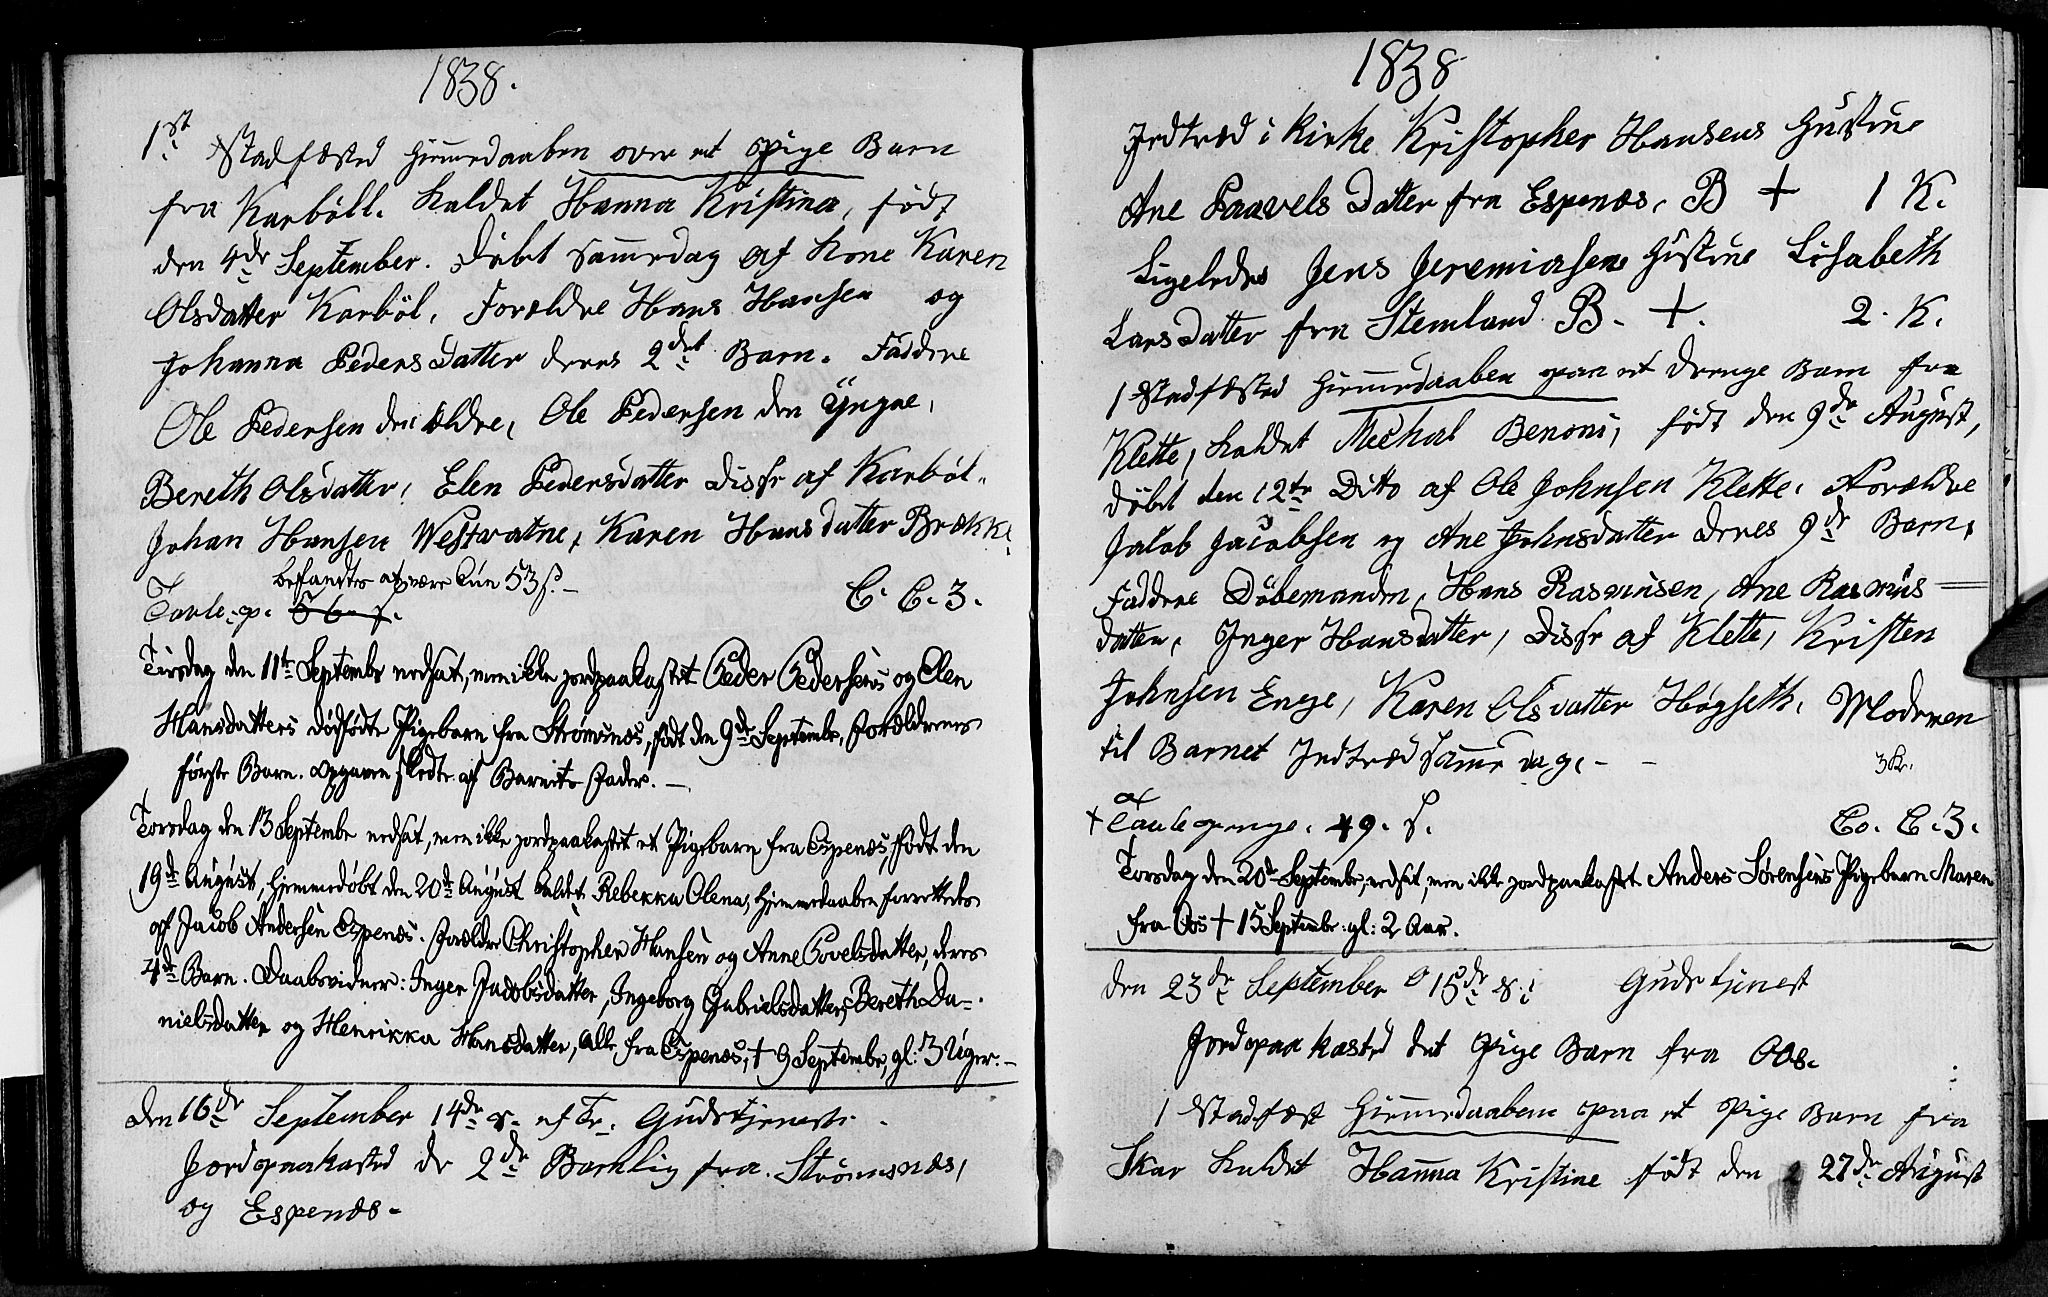 1838.
1st Stadfæsted Hiemedaaben over et Pige Barn
fra Karböll. kaldet Hanna Kristina, födt
den 4de September. Döbt samedag af Kone Karen
Olsdatter Karböl, Forældre Hans Hansen og
Johanna PedersDatter deres 2det Barn. Faddere
Ole Pedersen den Ældre, Ole Pedersen den Yngre,
Bereth Olsdatter, Elen Pedersdatter Disse af Karböl.
Johan Hansen Westvatne, Karen Hansdatter Brække
befandtes at være kun 53 s. –
Tavle p. 56 s. C. C. 3.
Tirsdag den 11te Septembr nedsat, men ikke jordpaakastet Peder Pedersens og Elen
Hansdatters dødfødte Pigebarn fra Strømsnæs, født den 9de Septembr, Forældrenes
første Barn. Opgaven skedte af Barnets Fader. –
Torsdag den 13 Septembr nedsat, men ikke jordpaakastet et Pigebarn fra Espenæs, født den
19de August, hjemmedøbt den 20de August kaldet Rebekka Olena; Hjemmedaaben forrettedes
af Jacob Andersen Espenæs. Forældre Christopher Hansen og Anne Povelsdatter, deres
4de Barn. Daabsvidner: Inger Jacobsdatter, Ingeborg Gabrielsdatter, Bereth Da-
nielsdatter og Henrikka Hansdatter, alle fra Espenæs, + 9 Septembr, gl: 3 Uger. –
Den 16de September 14de S. ef Tr. Gudstjeneste.
Jordpaakasted de 2de Barnlig fra Strömsnæs,
og Espenæs.
1838
Indtræd i Kirke Kristopher Hansens Hustrue
Ane PaavelsDatter fra Espenæs. B + 1 K.
Ligeledes Jens Jeremiasens Hustrue Lisabeth
LarsDatter fra Stemland B. +. 2. K.
1 Stadfæsted Hiemedaaben paa et Drenge Barn fra
Klette, kaldet Mechal Benoni, födt den 9de August,
döbt den 12te Dito af Ole Johnsen Klette. Forældre
Jakob Jacobsen og Ane Johnsdatter deres 9de Barn.
Faddere Döbemanden, Hans Rasmusen, Ane Rasmus=
datter, Inger Hansdatter, Disse af Klette, Kristen
Johnsen Enge, Karen Olsdatter Högseth. Moderen
til Barnet Indtræd same dag. – –
3 K.
+ Tavlepenge. 49. s. Co. C. 3.
Torsdag den 20de Septembr, nedsat, men ikke jordpaakastet Anders Sørensens Pigebarn Maren
fra Oos + 15 Septembr gl: 2 Aar.
Den 23de September 15de S: Gudstjenest
Jordpaakasted det Pige Barn fra Oos.
1 Stadfæst Hiemedaaben paa et Pige Barn fra
Skar kaldet Hanna Kristine födt den 27de August